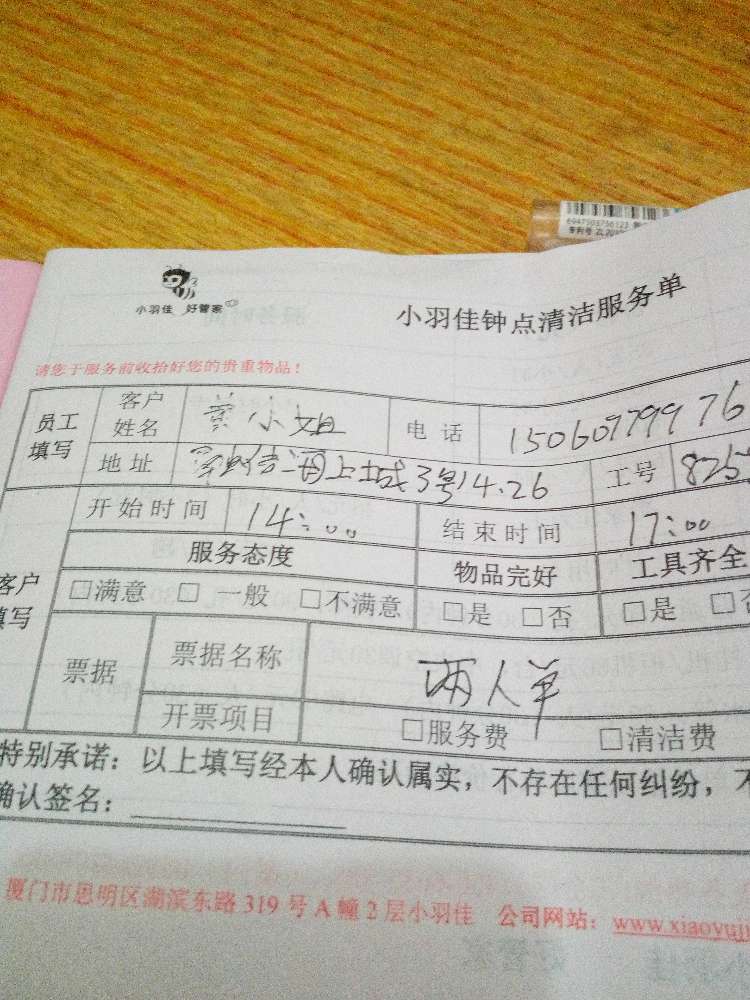 6947503756123
专利号 ZL201
小羽佳 好管家
小羽佳钟点清洁服务单
请您于服务前收拾好您的贵重物品！
员工填写 客户姓名 小姐 电话 15060979976
地址 海上城3号14.26 工号 825
客户填写 开始时间 14:00 结束时间 17:00
服务态度 物品完好 工具齐全
□满意 □一般 □不满意 □是 □否 □是 □否
票据 票据名称 两人单
开票项目 □服务费 □清洁费
特别承诺：以上填写经本人确认属实，不存在任何纠纷，不
确认签名：
厦门市思明区湖滨东路 319 号 A 幢 2 层小羽佳 公司网站：www.xiaoyuji